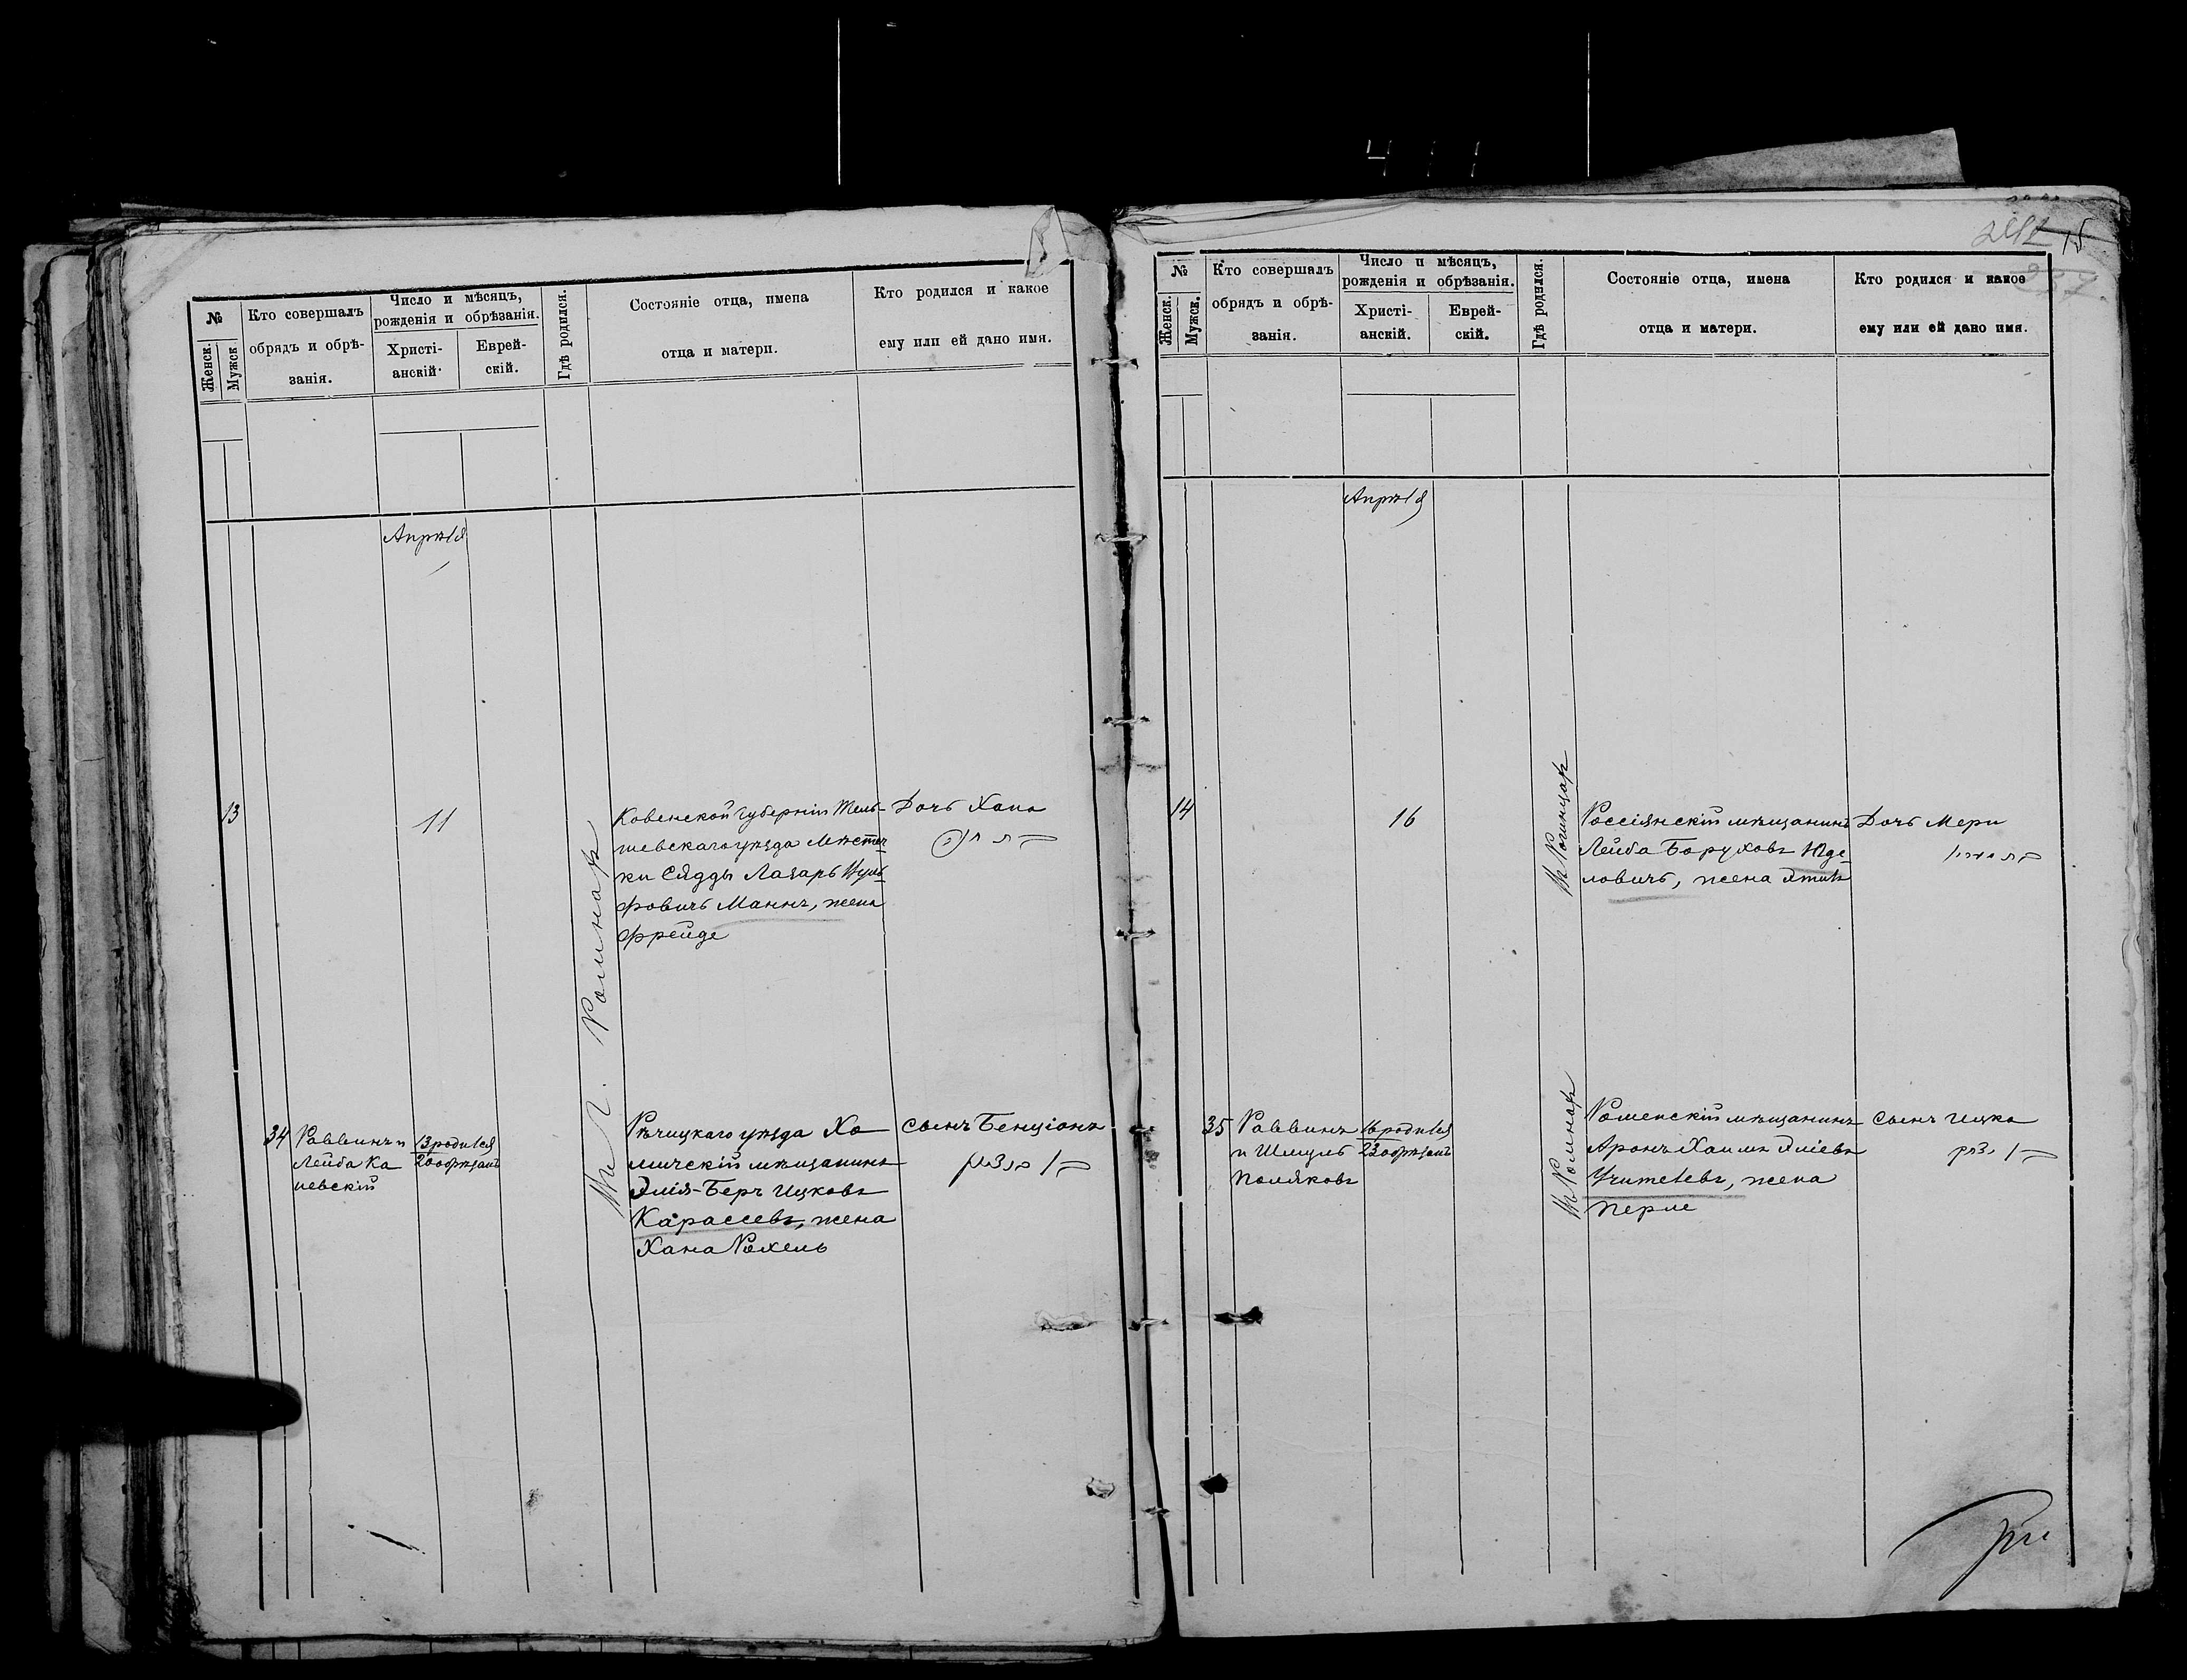 №
Женск.
Мужск.
Кто совершалъ
обрядъ и обрѣ-
занія.
Число и мѣсяцъ,
рожденія и обрѣзанія.
Христі-
анскій.
Еврей-
скій.
Гдѣ родился.
Состояніе отца, имена
отца и матери.
Кто родился и какое
ему или ей дано имя.
Апрѣля
13
11
Ковенской губерніи Тель-
шевскаго уѣзда Мѣстеч
ки Сядды Лазарь Вуль
фовичъ Маннъ, жена
Фрейде
Дочь Хана
Въ г. Ромнахъ
34
Раввинъ и
Лейба Ка
невскій
13 родился
20 обрѣзанъ
Рѣчицкаго уѣзда Хо
мичскій мѣщанинъ
Элія-Беръ Ицковъ
Карасевъ, жена
Хана Рохель
сынъ Бенціонъ
15
№
Женск.
Мужск.
Кто совершалъ
обрядъ и обрѣ-
занія.
Число и мѣсяцъ,
рожденія и обрѣзанія.
Христі-
анскій.
Еврей-
скій.
Гдѣ родился.
Состояніе отца, имена
отца и матери.
Кто родился и какое
ему или ей дано имя.
Апрѣля
14
16
Въ Ромнахъ
Россіянскій мѣщанинъ
Лейба Боруховъ Юде-
ловичъ, жена
Дочь Мери
35
Раввинъ
и Шмуль
Поляковъ
16 родился
23 обрѣзанъ
Въ Ромнахъ
Роменскій мѣщанинъ
Аронъ Хаимъ Эліевъ
Учителевъ, жена
Перле
сынъ Ицка